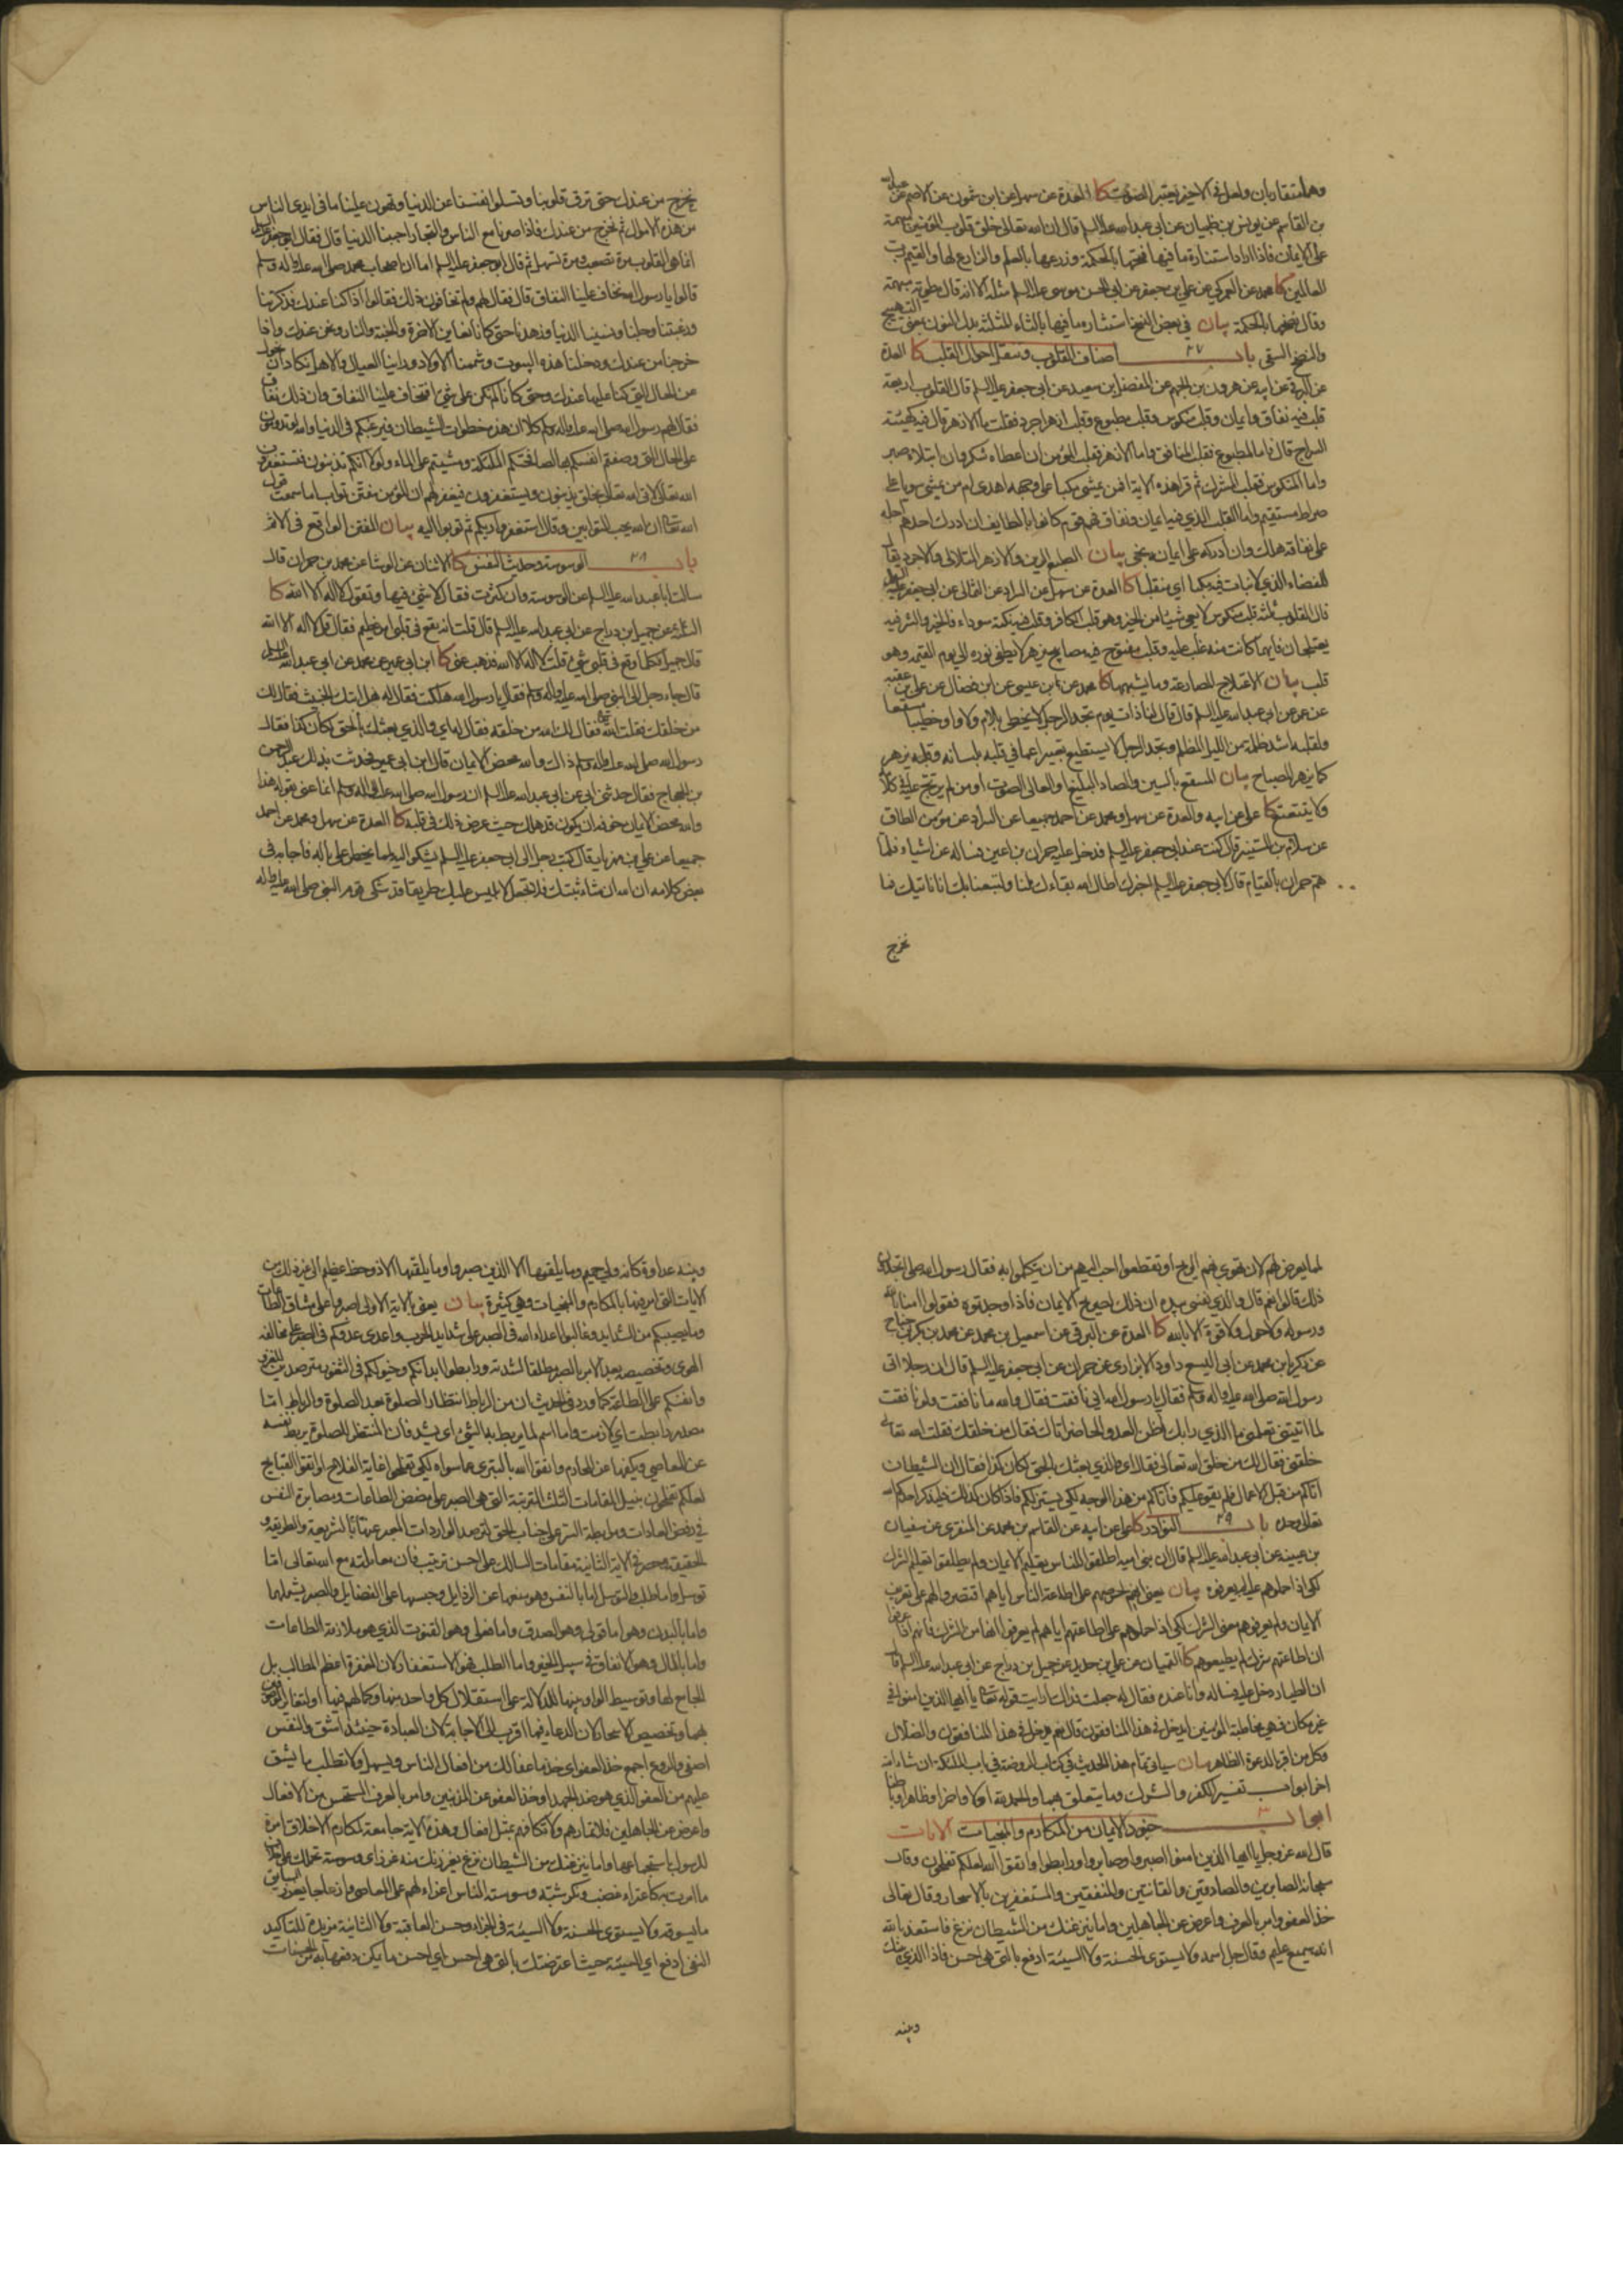 وهما متقاربان ولعل في الاخير يعتبر الصوت كا العدة عن سهل عن ابن شمون عن الاصم عن عبدالله
بن القاسم عن يونس بن ظبيان عن ابي عبدالله عليه السلم قال ان الله تعالى خلق قلوب المؤمنين مبهمة
على الايمان فاذا اراد استنارة ما فيها فتحها بالحكمة وزرعها بالعلم والزارع لها والقيم رب
العالمين كا محمد عن العمركي عن علي بن جعفر عن ابي الحسن موسى عليه السلم مثله الا انه قال مطوية مبهمة
وقال نضحها بالحكمة بيان في بعض النسخ استثارة ما فيها بالثاء المثلثة بدل النون بمعنى التهييج
والنضح السقي باب ٢٧ اصناف القلوب وتنقل احوال القلب كا العدة
عن البرقي عن ابيه عن هرون بن الجهم عن المفضل عن سعد عن ابي جعفر عليه السلم قال القلوب اربعة
قلب فيه نفاق وايمان وقلب منكوس وقلب مطبوع وقلب ازهر اجرد فقلت ما الازهر قال فيه كهيئة
السراج قال فاما المطبوع فقلب المنافق واما الازهر فقلب المؤمن ان اعطاه شكر وان ابتلاه صبر
واما المنكوس فقلب المشرك ثم قرا هذه الاية افمن يمشي مكبا على وجهه اهدى ام من يمشي سويا على
صراط مستقيم واما القلب الذي فيه ايمان ونفاق فهم قوم كانوا بالطايف فان ادرك احدهم اجله
على نفاقه هلك وان ادركه على ايمانه نجى بيان الطبع الرين والازهر المتلالى والاجرد يقال
للفضاء الذي لانبات فيه مكبا اي منقلبا كا العدة عن سهل عن السراد عن الثمالي عن ابي جعفر عليه السلم
قال القلوب ثلثة قلب منكوس لا يعي شيئا من الخير وهو قلب الكافر وقلب فيه نكتة سوداء فالخير والشر فيه
يعتلجان فايهما كانت منه غلب عليه وقلب مفتوح فيه مصابيح تزهر لا يطفى نوره الى يوم القيمة وهو
قلب بيان الاعتلاج المصارعة وما يشبهها كا محمد عن ابن عيسى عن ابن فضال عن علي بن عقبة
عن عمرو عن ابي عبدالله عليه السلم قال قال لنا ذات يوم تجد الرجل لا يخطي بلام ولا واو خطيبا مسقعا
ولقلبه اشد ظلمة من الليل المظلم وتجد الرجل لا يستطيع تعبيرا عما في قلبه بلسانه وقلبه يزهر
كما يزهر المصباح بيان المسقع بالسين والصاد البليغ او العالي الصوت او من لم يرتج عليه في كلامه
ولا يتتعتع كا علي عن ابيه والعدة عن سهل ومحمد عن احمد جميعا عن السراد عن مؤمن الطاق
عن سلام بن المستنير قال كنت عند ابي جعفر عليه السلم فدخل عليه حمران بن اعين فساله عن اشياء فلما
هم حمران بالقيام قال لابي جعفر عليه السلم اخبرك اطال الله بقاءك لنا وامتعنا بك انا ناتيك فما
نخرج
نخرج من عندك حتى ترق قلوبنا وتسلوا انفسنا عن الدنيا وتهون علينا ما في ايدي الناس
من هذه الاموال ثم نخرج من عندك فاذا صرنا مع الناس والتجار احببنا الدنيا قال فقال ابو جعفر عليه السلم
انما هي القلوب مرة تصعب ومرة تسهل ثم قال ابو جعفر عليه السلم اما ان اصحاب محمد صلى الله عليه واله وسلم
قالوا يا رسول الله نخاف علينا النفاق قال فقال لهم ولم تخافون ذلك فقالوا اذا كنا عندك فذكرتنا
ورغبتنا وجلنا ونسينا الدنيا وزهدنا حتى كانا نعاين الاخرة والجنة والنار ونحن عندك واذا
خرجنا من عندك ودخلنا هذه البيوت وشممنا الاولاد وراينا العيال والاهل نكاد ان نحول
عن الحال التي كنا عليها عندك وحتى كانا لم نكن على شي افتخاف علينا النفاق وان ذلك نفاق
فقال لهم رسول الله صلى الله عليه واله وسلم كلا ان هذه خطوات الشيطان فيرغبكم في الدنيا والله لو تدومون
على الحال التي وصفتم انفسكم بها لصافحتكم الملئكة ومشيتم على الماء ولولا انكم تذنبون فتستغفرون
الله تعالى لاتى الله تعالى بخلق يذنبون ويستغفرون فيغفر لهم ان المؤمن مفتن تواب اما سمعت قول
الله تعالى ان الله يحب التوابين وقال استغفروا ربكم ثم توبوا اليه بيان المفتن الواقع في الاثم
باب ٢٨ الوسوسة وحديث النفس كا الاثنان عن الوشا عن محمد بن حمران قال
سالت ابا عبدالله عليه السلم عن الوسوسة وان كثرت فقال لا شي فيها وتقول لا اله الا الله كا
الثلاثة عن جميل بن دراج عن ابي عبدالله عليه السلم قال قلت انه يقع في قلبي امر عظيم فقال قل لا اله الا الله
قال جميل فكلما وقع في قلبي شي قلت لا اله الا الله فذهب عني كا ابن ابي عمير عن محمد عن ابي عبدالله عليه السلم
قال جاء رجل الى النبي صلى الله عليه واله وسلم فقال يا رسول الله هلكت فقال له هل اتاك الخبيث فقال لك
من خلقك فقلت الله تعالى فقال لك الله من خلقه فقال له اي والذي بعثك بالحق لكان كذا فقال
رسول الله صلى الله عليه واله وسلم ذاك والله محض الايمان قال ابن ابي عمير فحدثت بذلك عبد الرحمن
بن الحجاج فقال حدثني ابي عن ابي عبدالله عليه السلم ان رسول الله صلى الله عليه واله وسلم انما عنى بقوله هذا
والله محض الايمان خوفه ان يكون قد هلك حيث عرض ذلك في قلبه كا العدة عن سهل ومحمد عن احمد
جميعا عن علي بن مهزيار قال كتب رجل الى ابي جعفر عليه السلم يشكو اليه لمما يخطر على باله فاجابه في
بعض كلامه ان الله ان شاء ثبتك فلا تجعل لابليس عليك طريقا قد شكى قوم الى النبي صلى الله عليه واله
لمما يعرض لهم لان تهوي بهم الريح او تقطعوا احب اليهم من ان يتكلموا به فقال رسول الله صلى اتجدون
ذلك قالوا نعم قال والذي نفسي بيده ان ذلك لصريح الايمان فاذا وجدتموه فقولوا امنا بالله
ورسوله ولا حول ولا قوة الا بالله كا العدة عن البرقي عن اسمعيل بن محمد عن محمد بن بكر بن جناح
عن زكريا بن محمد عن ابي اليسع داود الابزاري عن حمران عن ابي جعفر عليه السلم قال ان رجلا اتى
رسول الله صلى الله عليه واله وسلم فقال يا رسول الله اني نافقت فقال والله ما نافقت ولو نافقت
لما اتيتني تعلمني ما الذي رابك اظن العدو الحاضر اتاك فقال من خلقك فقلت الله تعالى
خلقني فقال لك من خلق الله تعالى فقال اي والذي بعثك بالحق لكان كذا فقال ان الشيطان
اتاكم من قبل الاعمال فلم يقو عليكم فاتاكم من هذا الوجه لكي يستزلكم فاذا كان كذلك فليذكر احدكم الله
تعالى وحده باب ٢٩ النوادر كا علي عن ابيه عن القاسم بن محمد عن المنقري عن سفيان
بن عيينة عن ابي عبدالله عليه السلم قال ان بني امية اطلقوا للناس تعليم الايمان ولم يطلقوا تعليم الشرك
لكي اذا حملوهم عليه لم يعرفوه بيان يعني انهم لحرصهم على اطاعة الناس اياهم اقتصروا لهم على تعريف
الايمان ولم يعرفوهم معنى الشرك لكي اذا حملوهم على اطاعتهم اياهم لم يعرفوا انها من الشرك فانهم اذا عرفوا
ان اطاعتهم شرك لم يطيعوهم كا القميان عن علي بن حديد عن جميل بن دراج عن ابي عبدالله عليه السلم قال
ان الطيار دخل عليه فساله وانا عنده فقال له جعلت فداك ارايت قوله تعالى يا ايها الذين امنوا في
غير مكان في مخاطبة المؤمنين ايدخل في هذا المنافقون قال نعم يدخل في هذا المنافقون والضلال
وكل من اقر بالدعوة الظاهرة بيان سياتي تمام هذا الحديث في كتاب الروضة في باب الملئكة ان شاء الله
اخر ابواب تفسير الكفر والشرك وما يتعلق بهما والحمد لله اولا واخرا وظاهرا وباطنا
ابواب جنود الايمان من المكارم والمنجيات الايات
قال الله عز وجل يا ايها الذين امنوا اصبروا وصابروا ورابطوا واتقوا الله لعلكم تفلحون وقال
سبحانه الصابرين والصادقين والقانتين والمنفقين والمستغفرين بالاسحار وقال تعالى
خذ العفو وامر بالعرف واعرض عن الجاهلين واما ينزغنك من الشيطان نزغ فاستعذ بالله
انه سميع عليم وقال جل اسمه ولا يستوى الحسنة ولا السيئة ادفع بالتي هي احسن فاذا الذي بينك
وبينه
وبينه عداوة كانه ولي حميم وما يلقيها الا الذين صبروا وما يلقيها الا ذو حظ عظيم الى غير ذلك من
الايات التي امر فيها بالمكارم والمنجيات وهي كثيرة بيان يعني بالاية الاولى اصبروا على مشاق الطاعات
وما يصيبكم من الشدايد وغالبوا اعداء الله في الصبر على شدايد الحرب واعدى عدوكم في الصبر على مخالفة
الهوى وتخصيصه بعد الامر بالصبر مطلقا لشدته ورابطوا ابدانكم وخيولكم في الثغور مترصدين للغزو
وانفسكم على الطاعة كما ورد في الحديث ان من الرباط انتظار الصلوة بعد الصلوة والرباط اما
مصدر رابطت اي لازمت واما اسم لما يربط به الشي اي يشد فان المنتظر للصلوة يربط نفسه
عن المعاصي ويكفها عن المحارم واتقوا الله بالتبري عما سواه لكي تفلحوا غاية الفلاح او اتقوا القبايح
لعلكم تفلحون بنيل المقامات الثلث المترتبة التي هي الصبر على مضض الطاعات ومصابرة النفس
في رفض العادات ومرابطة السر على جناب الحق لترصد الواردات المعبر عنها بالشريعة والطريقة و
الحقيقة وحصر في الاية الثانية مقامات السالك على احسن ترتيب فان معاملته مع الله تعالى اما
توسل واما طلب والتوسل اما بالنفس وهو منعها عن الرذايل وحبسها على الفضايل والصبر يشملهما
واما بالبدن وهو اما قولي وهو الصدق واما فعلي وهو القنوت الذي هو ملازمة الطاعات
واما بالمال وهو الانفاق في سبيل الخير واما الطلب فهو الاستغفار لان المغفرة اعظم المطالب بل
الجامع لها وتوسيط الواو بينها للدلالة على استقلال كل واحد منها وكمالهم فيها او لتغاير الموصوفين
بها وتخصيص الاسحار لان الدعاء فيها اقرب الى الاجابة لان العبادة حينئذ اشق والنفس
اصفى والروع اجمع خذ العفو اي خذ ما عفا لك من افعال الناس ويسهل ولا تطلب ما يشق
عليهم من العفو الذي هو ضد الجهد او خذ العفو عن المذنبين وامر بالعرف المستحسن من الافعال
واعرض عن الجاهلين فلا تمارهم ولا تكافهم بمثل افعالهم وهذه الاية جامعة لمكارم الاخلاق امرة
للرسول باستجماعها واما ينزغنك من الشيطان نزغ ينخسنك منه نخس اي وسوسة تحملك على خلاف
ما امرت به كاعتراء غضب وفكر شبه وسوسته للناس اغراء لهم على المعاصي وازعاجا بغرز السايق
ما يسوقه ولا يستوى الحسنة ولا السيئة في الجزاء وحسن العاقبة ولا الثانية مزيدة لتاكيد
النفي ادفع اي السيئة حيث اعترضتك بالتي هي احسن اي احسن ما يمكن دفعها به من الحسنات